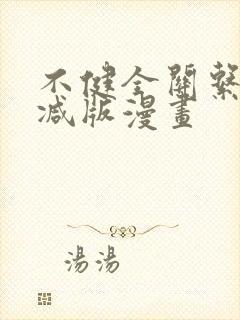 不健全關繫
减版漫畫
湯湯